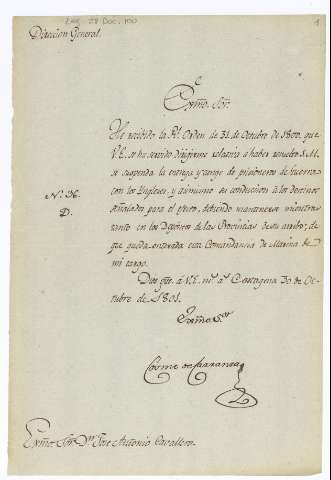 Direccion General.
1
Exmo. Sor.
He recibido la Rl. Orden de 31 de Octubre de 1800, que
V.E. se ha servido dirigirme relativa á haber resuelto S.M.
se suspenda la entrega y cange de prisioneros de Guerra
con los Ingleses, y asimismo su conduccion á los
señalados para el efecto, debiendo mantenerse mientras
tanto en los Depósitos de las Provincias de su arribo; de
que queda enterada esta Comandancia de Marina de
mi cargo.
Dios gue. á V.E. ms. as. Cartagena 30 de Oc-
tubre de 1801.
Exmo. Sor.
Cosme de Carranza
Exmo. Sor. Dn. Jose Antonio Cavallero.